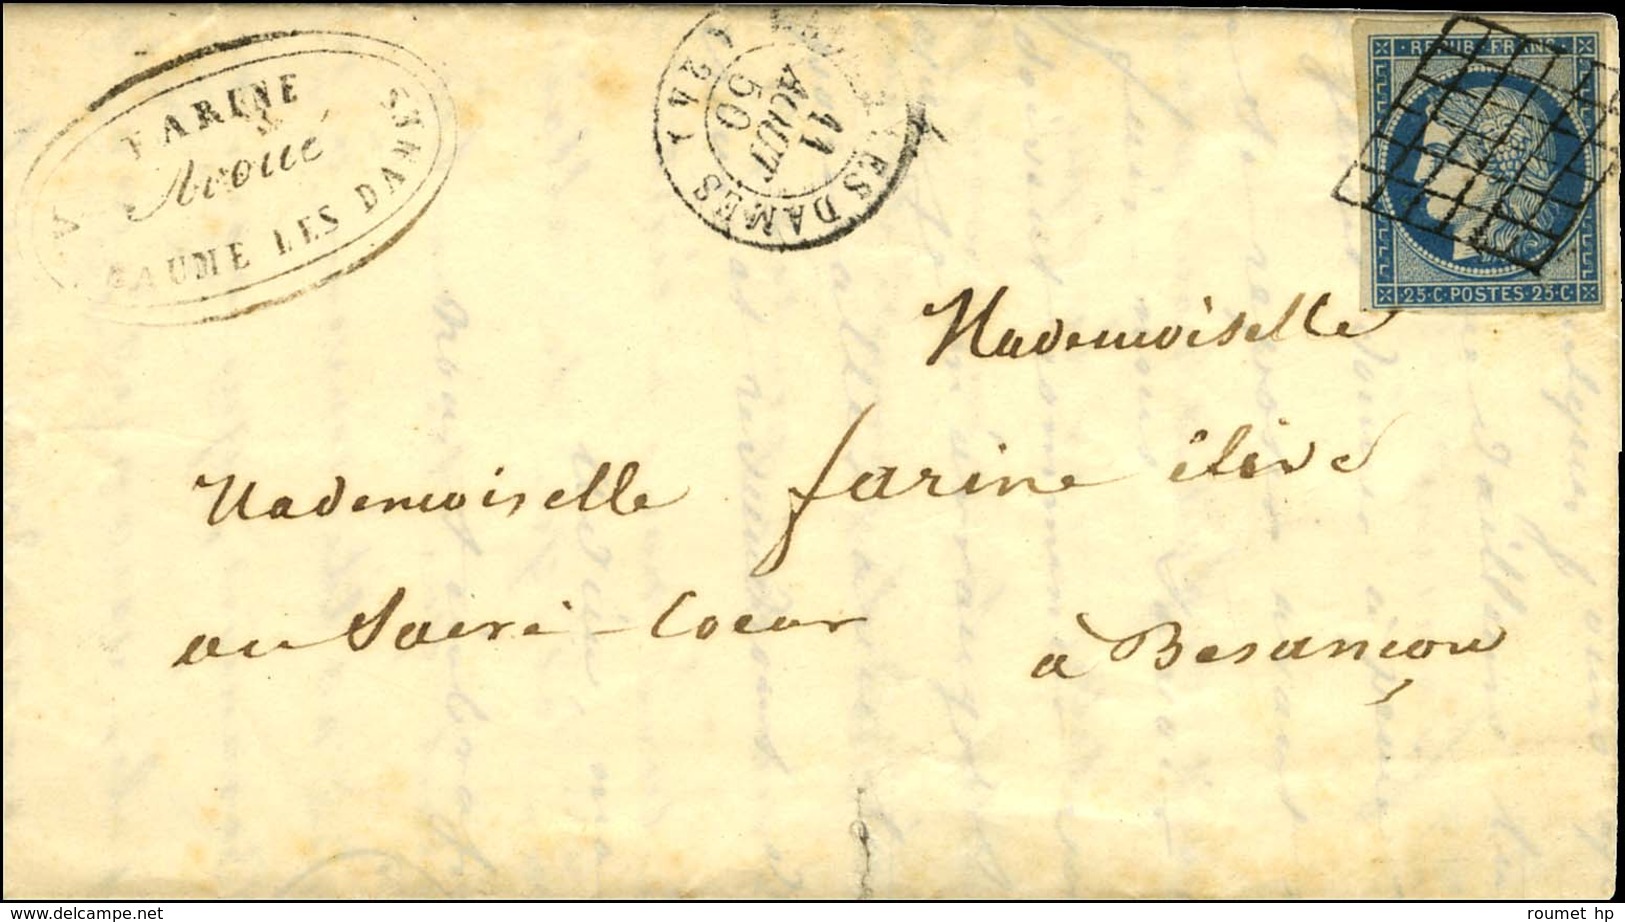 FARINE
Avoué
BAUME LES DAMES
11
AOUT
50
LES DAMES
(24)
REPUB. FRANC.
25·C·POSTES·25·C·
Mademoiselle
Mademoiselle farine élève
au Sacré-Coeur à Besançon
roumet hp